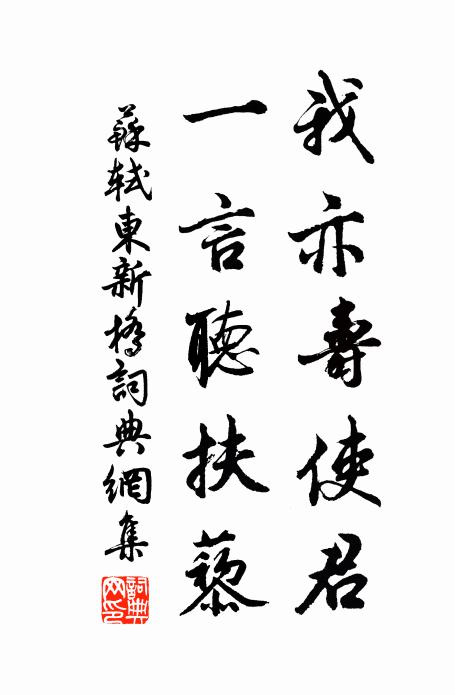 我亦壽使君
一言聽扶藜
蘇軾東新橋詞典網集
詞典網印